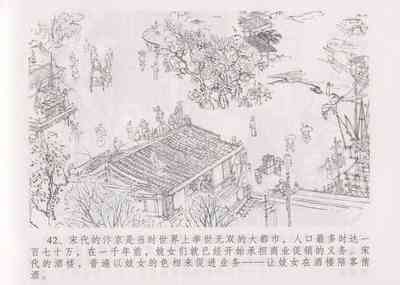 42、宋代的汴京是当时世界上举世无双的大都市，人口最多时达一
百七十万，在一千年前，妓女们就已经开始承担商业促销的义务。宋
代的酒楼，普遍以妓女的色相来促进业务——让妓女在酒楼陪客侑
酒。